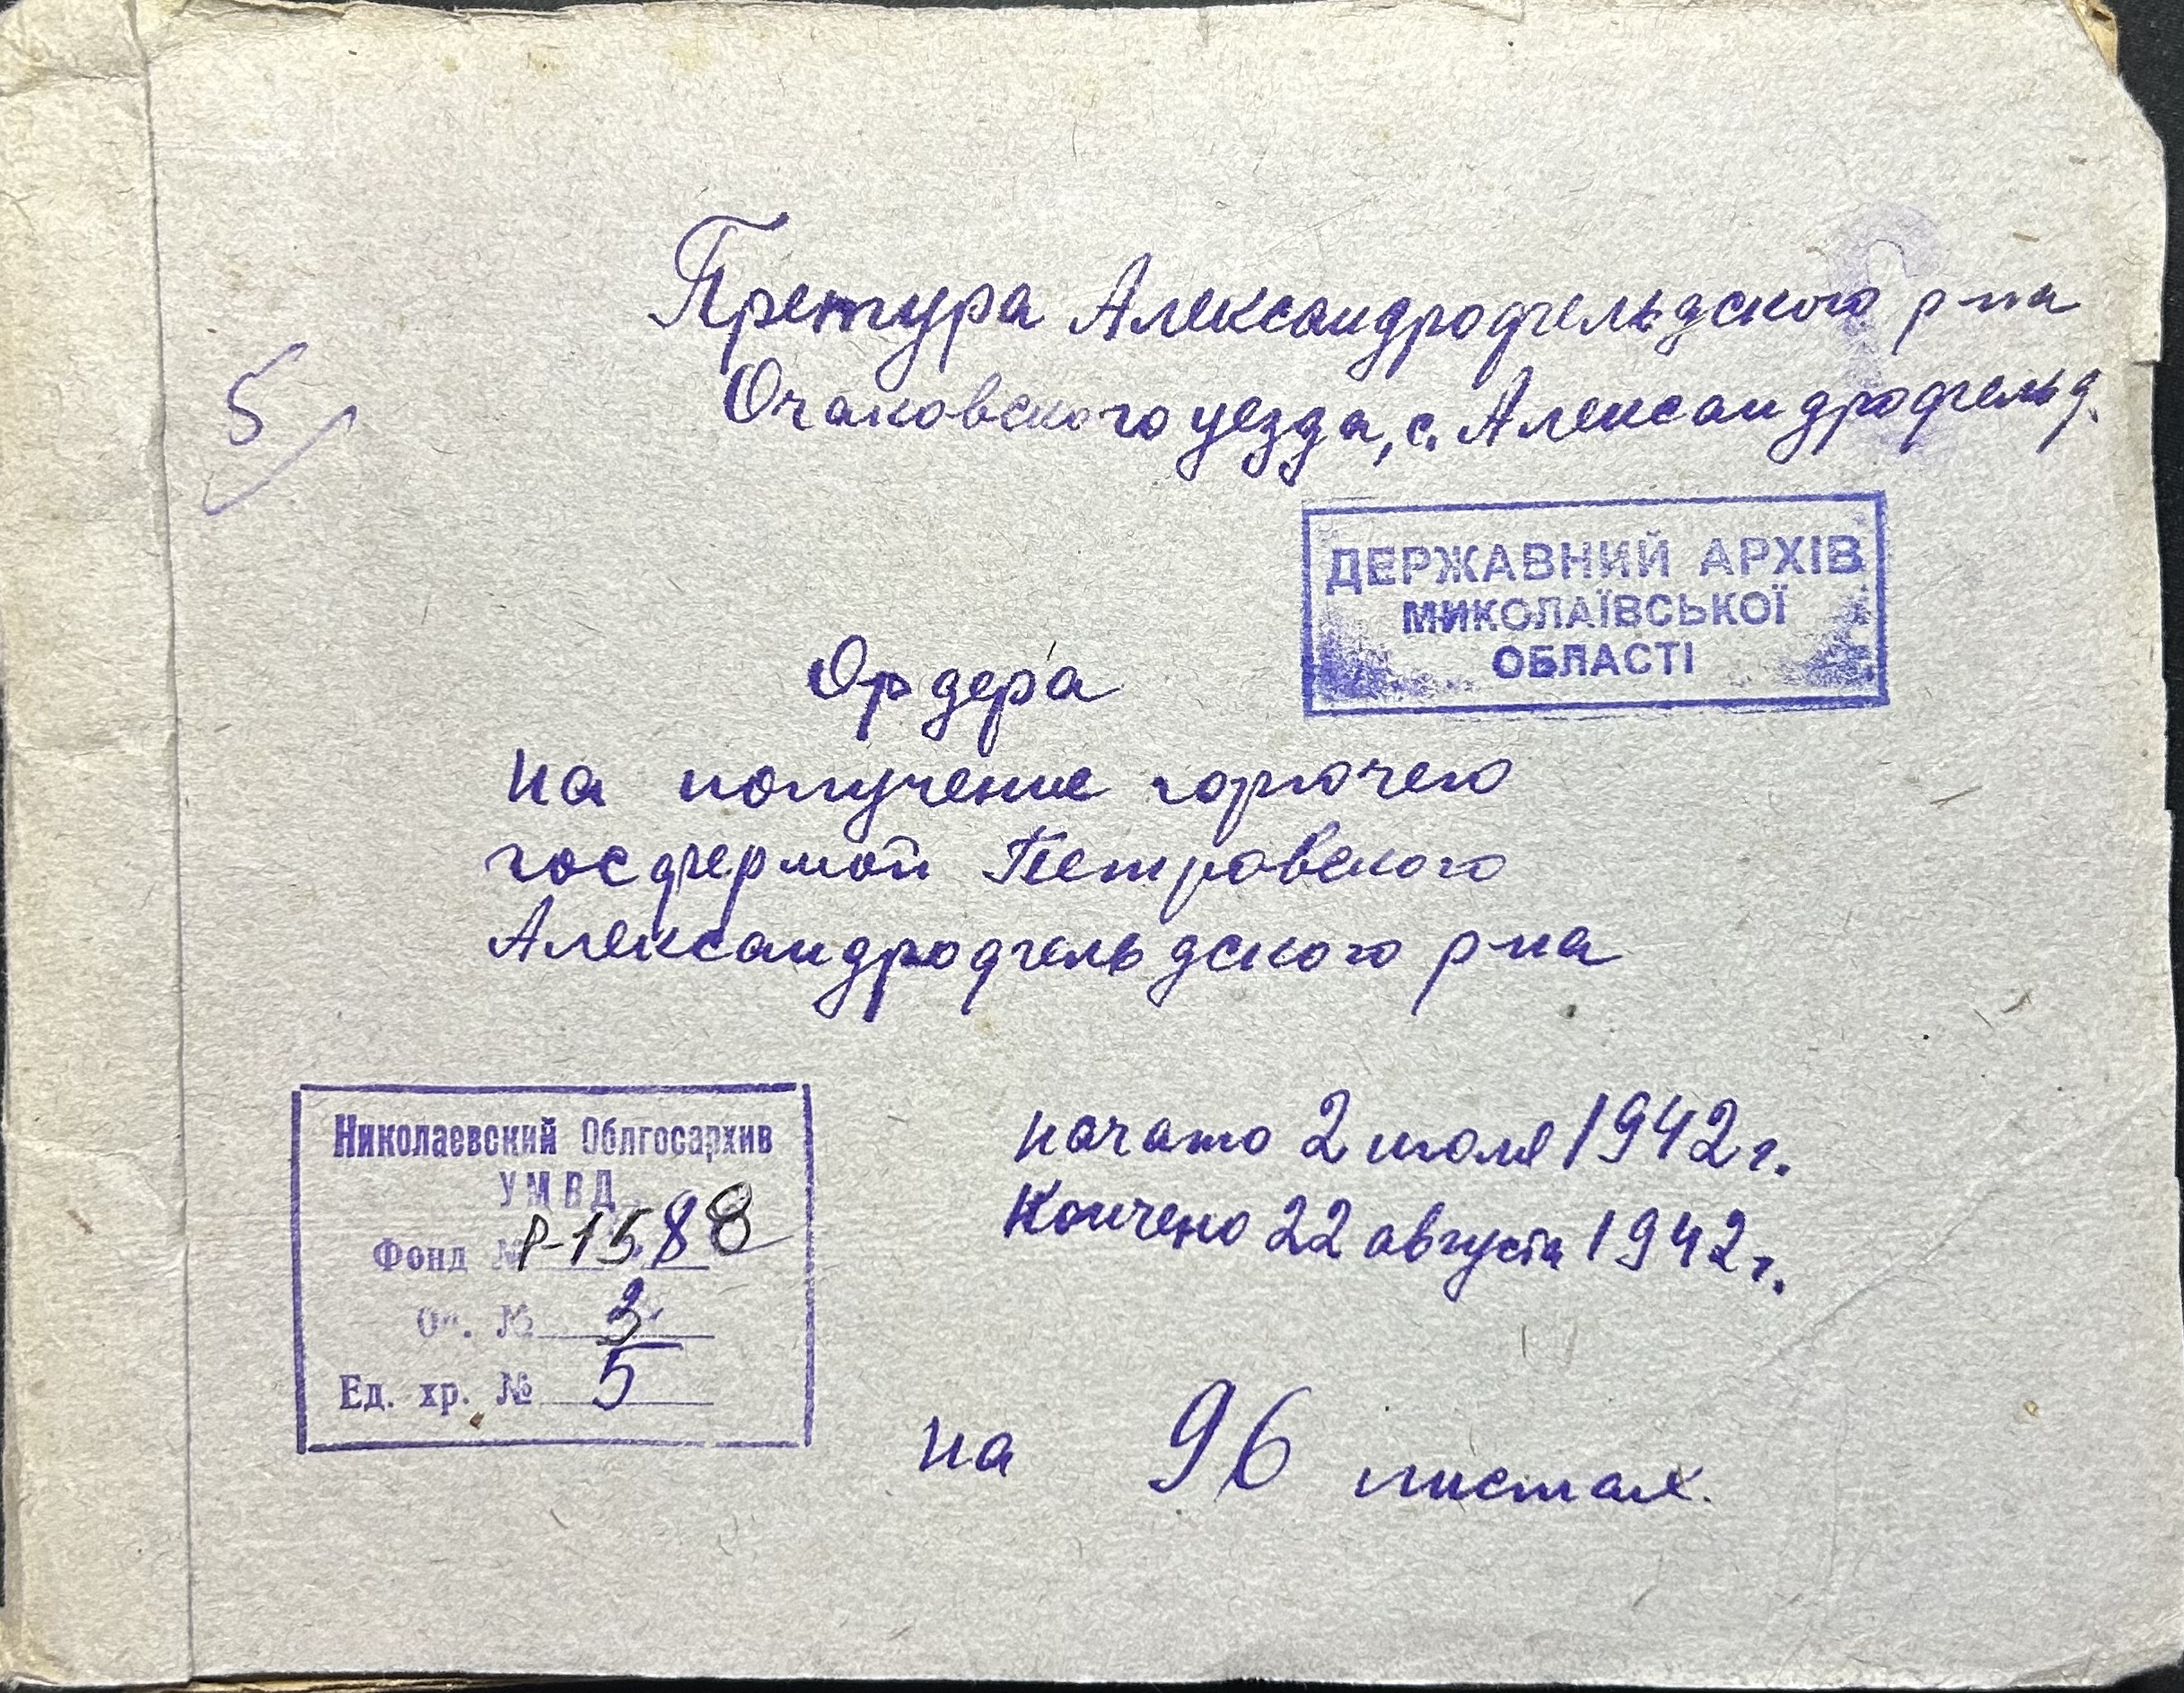 Претура Александрофельдского р-на
Очаковского уезда, с. Александрофельд.
5
ДЕРЖАВНИЙ АРХІВ
МИКОЛАЇВСЬКОЇ
ОБЛАСТІ
Ордера
на получение горючего
госфермой Петровского
Александрофельдского р-на
Николаевский Облгосархив
УМВД
Фонд № Р-1588
Оп. № 3
Ед. хр. № 5
начато 2 июля 1942 г.
Кончено 22 августа 1942 г.
на 96 листах.